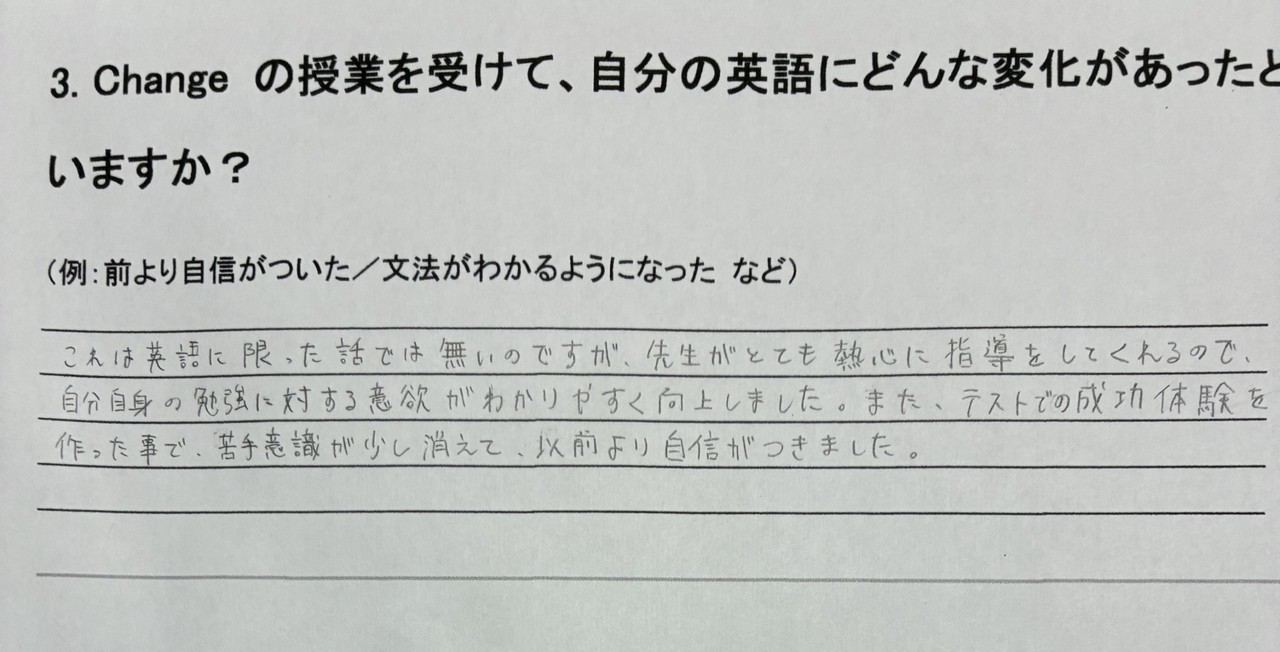 3. Change の授業を受けて、自分の英語にどんな変化があったと
いますか？
（例：前より自信がついた／文法がわかるようになった など）
これは英語に限った話では無いのですが、先生がとても熱心に指導をしてくれるので、
自分自身の勉強に対する意欲がわかりやすく向上しました。また、テストでの成功体験を
作った事で、苦手意識が少し消えて、以前より自信がつきました。